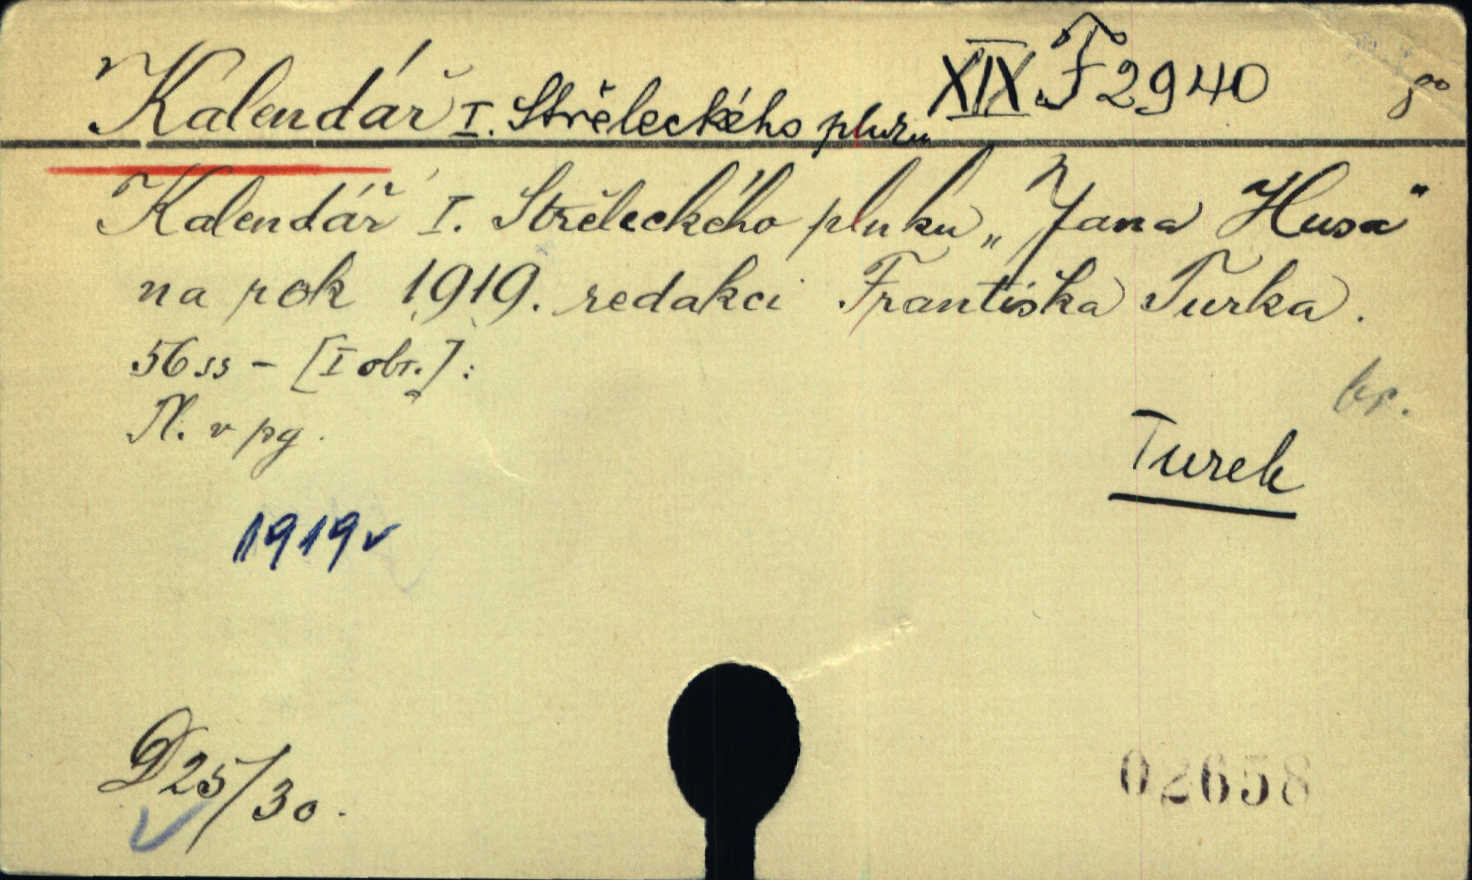 Kalendář I. Střeleckého pluku XIX F 2940 8°
Kalendář I. Střeleckého pluku „Jana Husa"
na rok 1919. redakcí Františka Turka.
56 ss - [I obr.]:
N. v pg.
br.
Turek
1919
D 25/30.
02658